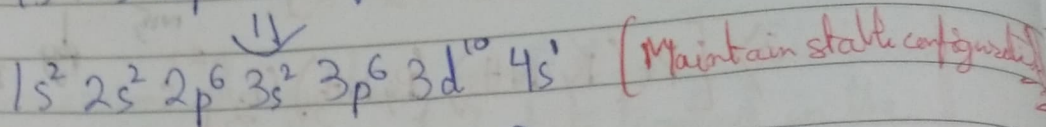 1s² 2s² 2p⁶ 3s² 3p⁶ 3d¹⁰ 4s¹ (Maintain stable configuration)